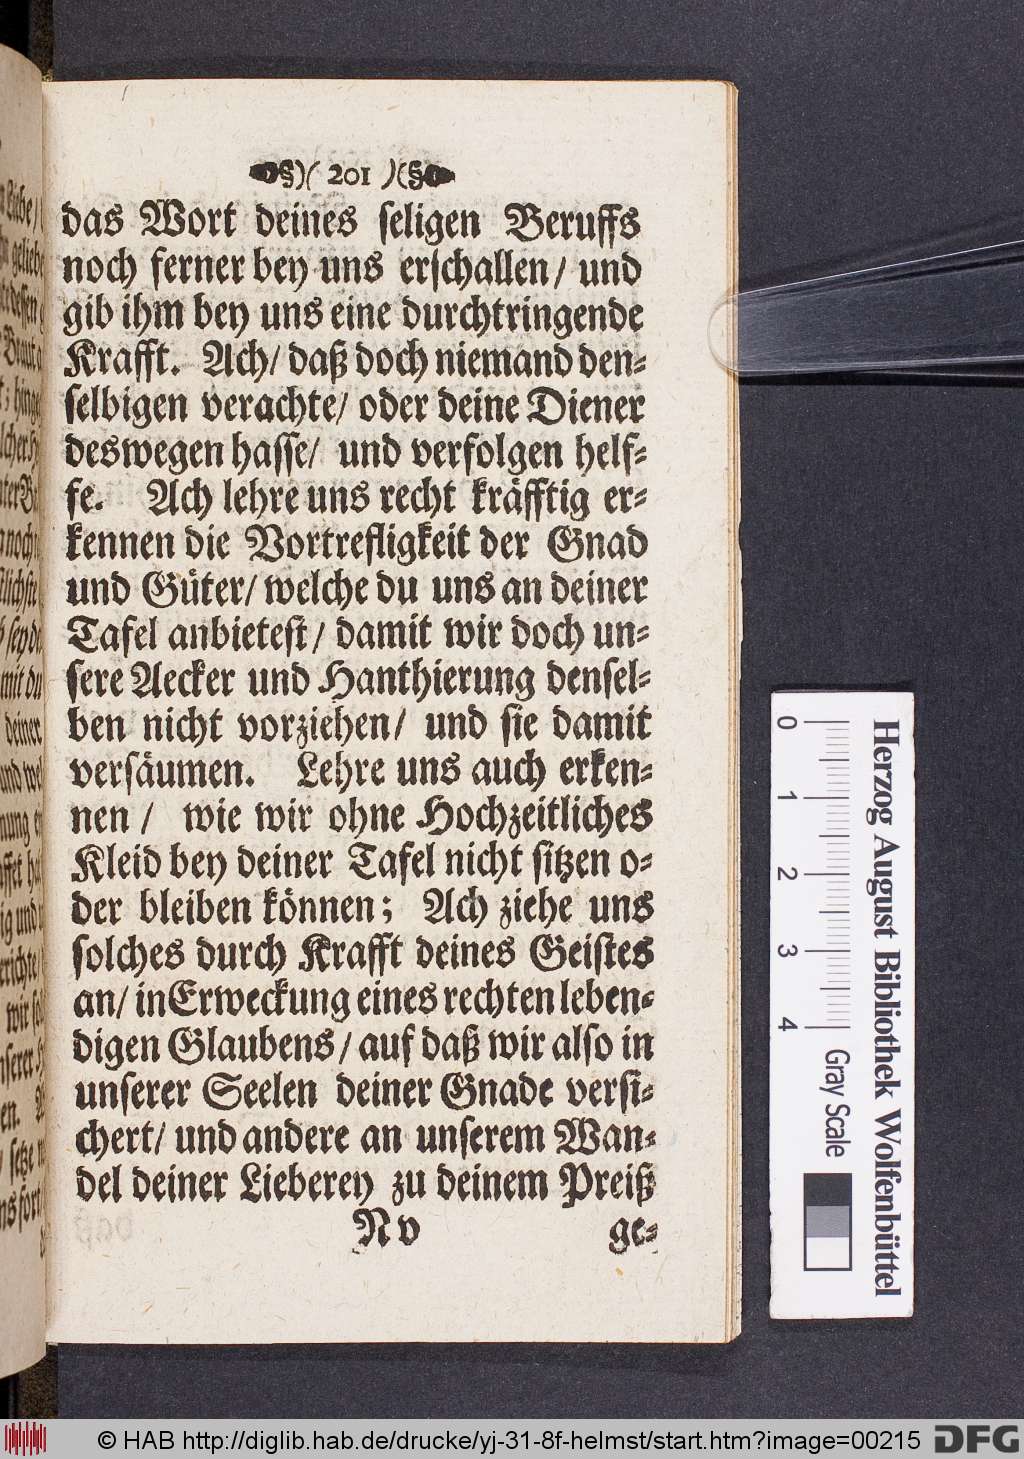 §)( 201 )(§
das Wort deines seligen Beruffs
noch ferner bey uns erschallen/ und
gib ihm bey uns eine durchtringende
Krafft. Ach/ daß doch niemand den-
selbigen verachte/ oder deine Diener
deswegen hasse/ und verfolgen helf-
fe. Ach lehre uns recht kräfftig er-
kennen die Vortrefligkeit der Gnad
und Güter/ welche du uns an deiner
Tafel anbietest/ damit wir doch un-
sere Aecker und Hanthierung densel-
ben nicht vorziehen/ und sie damit
versäumen. Lehre uns auch erken-
nen / wie wir ohne Hochzeitliches
Kleid bey deiner Tafel nicht sitzen o-
der bleiben können; Ach ziehe uns
solches durch Krafft deines Geistes
an/ in Erweckung eines rechten leben-
digen Glaubens/ auf daß wir also in
unserer Seelen deiner Gnade versi-
chert/ und andere an unserem Wan-
del deiner Lieberey zu deinem Preiß
N v ge-
Herzog August Bibliothek Wolfenbüttel
0 1 2 3 4 Gray Scale
© HAB http://diglib.hab.de/drucke/yj-31-8f-helmst/start.htm?image=00215 DFG